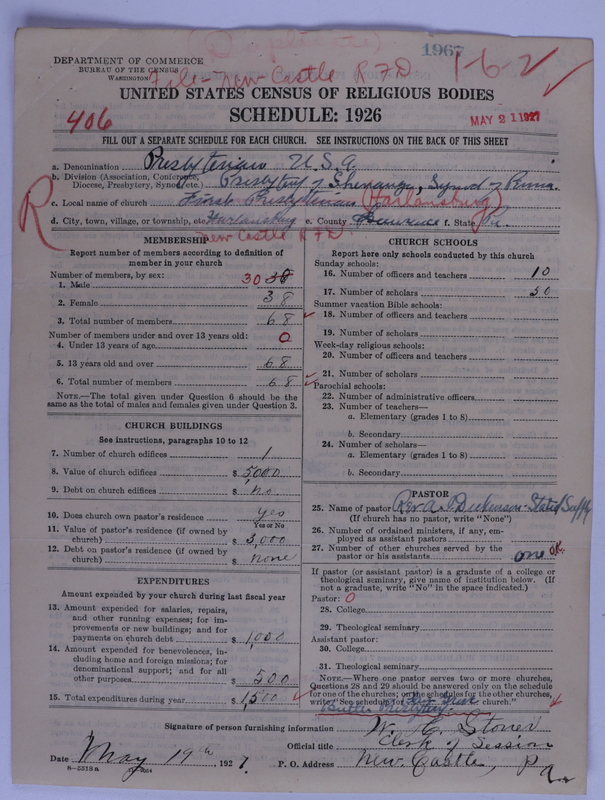 (Duplicate)
1967
DEPARTMENT OF COMMERCE
BUREAU OF THE CENSUS
WASHINGTON
File - New Castle RFD 1-6-2
UNITED STATES CENSUS OF RELIGIOUS BODIES
406
SCHEDULE: 1926
MAY 21 1927
FILL OUT A SEPARATE SCHEDULE FOR EACH CHURCH. SEE INSTRUCTIONS ON THE BACK OF THIS SHEET
a. Denomination Presbyterian U.S.A.
b. Division (Association, Conference, Diocese, Presbytery, Synod, etc.) Presbytery of Shenango, Synod of Penna.
R
c. Local name of church First Presbyterian (Harlansburg)
d. City, town, village, or township, etc. Harlansburg e. County Lawrence f. State Pa.
New Castle RFD
MEMBERSHIP
Report number of members according to definition of member in your church
Number of members, by sex:
1. Male 30 30
2. Female 38
3. Total number of members 68
Number of members under and over 13 years old:
4. Under 13 years of age 0
5. 13 years old and over 68
6. Total number of members 68
NOTE.—The total given under Question 6 should be the same as the total of males and females given under Question 3.
CHURCH BUILDINGS
See instructions, paragraphs 10 to 12
7. Number of church edifices 1
8. Value of church edifices $ 5000
9. Debt on church edifices $ no
10. Does church own pastor's residence yes
Yes or No
11. Value of pastor's residence (if owned by church) $ 3,000
12. Debt on pastor's residence (if owned by church) $ none
EXPENDITURES
Amount expended by your church during last fiscal year
13. Amount expended for salaries, repairs, and other running expenses; for improvements or new buildings; and for payments on church debt $ 1,000
14. Amount expended for benevolences, including home and foreign missions; for denominational support; and for all other purposes $ 500
15. Total expenditures during year $ 1,500
CHURCH SCHOOLS
Report here only schools conducted by this church
Sunday schools:
16. Number of officers and teachers 10
17. Number of scholars 50
Summer vacation Bible schools:
18. Number of officers and teachers
19. Number of scholars
Week-day religious schools:
20. Number of officers and teachers
21. Number of scholars
Parochial schools:
22. Number of administrative officers
23. Number of teachers—
a. Elementary (grades 1 to 8)
b. Secondary
24. Number of scholars—
a. Elementary (grades 1 to 8)
b. Secondary
PASTOR
25. Name of pastor Rev. A. Dickinson - Stated Supply
(If church has no pastor, write "None")
26. Number of ordained ministers, if any, employed as assistant pastors
27. Number of other churches served by the pastor or his assistants one OK
If pastor (or assistant pastor) is a graduate of a college or theological seminary, give name of institution below. (If not a graduate, write "No" in the space indicated.)
Pastor: 0
28. College
29. Theological seminary
Assistant pastor:
30. College
31. Theological seminary
NOTE.—Where one pastor serves two or more churches, Questions 28 and 29 should be answered only on the schedule for one of the churches; on the schedules for the other churches, write "See schedule for church."
Butler Presbytery
Signature of person furnishing information W. H. Stoner
Official title Clerk of Session
Date May 19th 1927. P. O. Address New Castle, Pa.
8-5318a